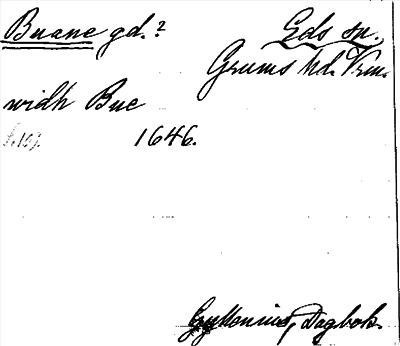 Buane gd.? Eds sn.
Grums hd. Vrm.
widh Bue
1646.
Gyllenius, Dagbok.